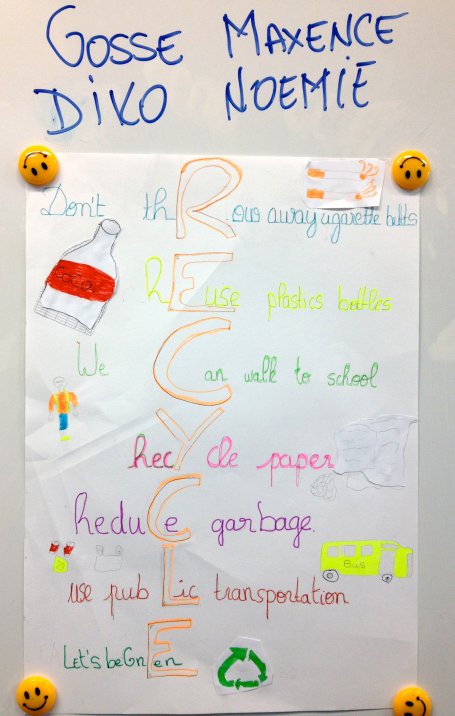 GOSSE MAXENCE
DIKO NOEMIE
Don't thRow away cigarette butts
COCA
REuse plastics bottles
We Can walk to school
RecYcle paper
ReduCe garbage.
Bus
use pubLic transportation
Let's be GrEen